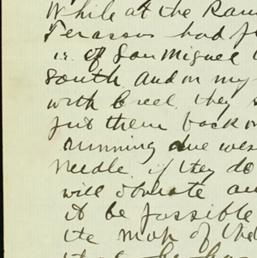 While at the Ran
Terassas had f
is of San Miguel
South and on my
with Creel, they s
put them back on
running due wes
Needle, if they do
will obviate an
it be possible
the map of the